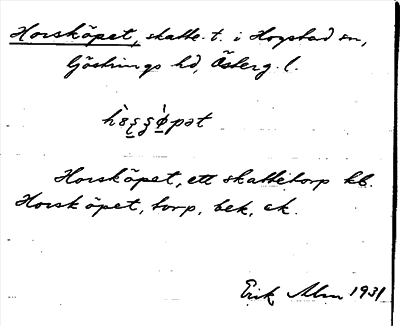 Horsköpet, skatte.t. i Hogstad sn,
Göstrings hd, Österg. l.
Horsköpet, ett skattetorp kb.
Horsköpet, torp, bek, ek.
Erik Alm 1931